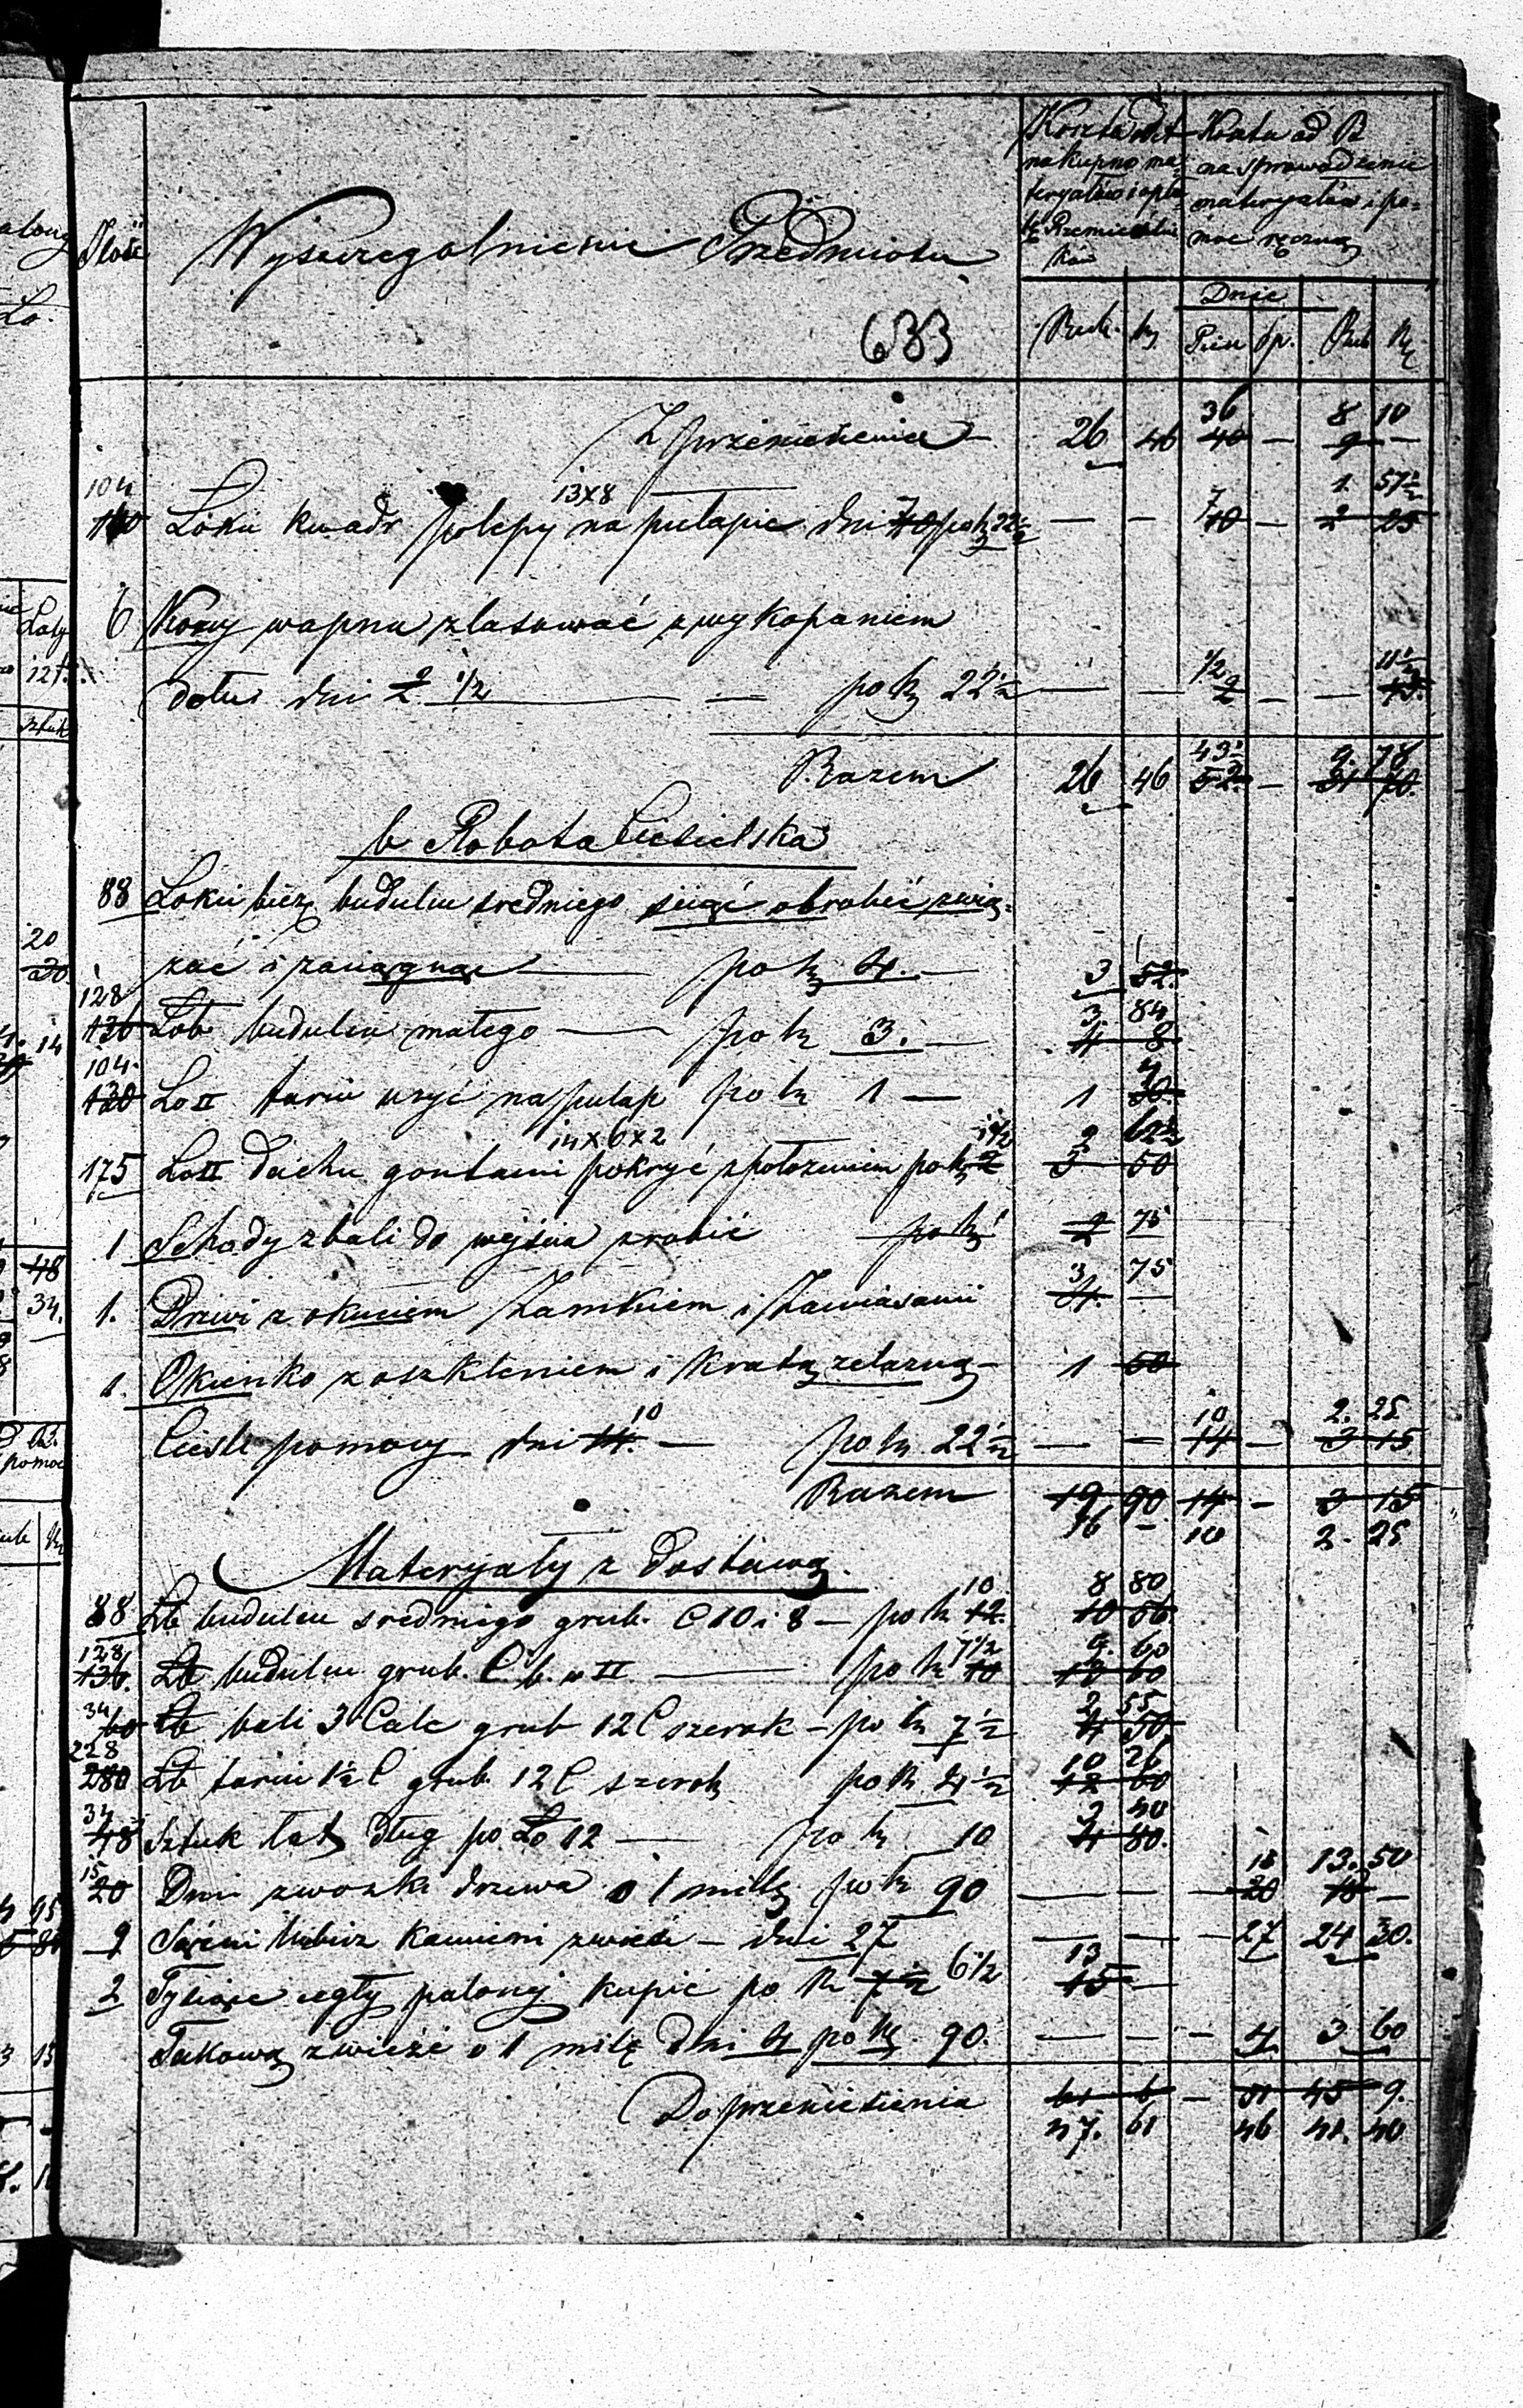 Ilość
Wyszczególnienie Przedmiotu
Koszta od A
na kupno ma-
teryałów i opła-
tę Rzemieślni-
ków
Koszta od B
na sprowadzenie
materyałów i po-
moc ręczną
Dnie
633
Rub. k. Piesz. sp. Rub K.
Z przeniesienia 26 46 36 40 — 8 10 9 —
104 13x8 7 1. 57½
140 Łokci kwadr polepy na pułapie dni 7 10 po k 22½ — — 10 — 2 25
6 Korcy wapna zlasować z wykopaniem
dołu dni 2 ½ — po k 22½ — — ½ 2 — — 11½ 45
Razem 26 46 43½ 52 — 9. 78
b Robota Ciesielska
88 Łokci bież budulcu średniego ściąć obrobić zwią-
zać i zaciągnąć — po k 4. — 3 52
128 3. 84
136 Łob budulcu małego — po k 3. — 4 8
104. 4
130 Ło□ tarcic użyć na pułap po k 1 — 1 30
14x6x2 1½ 2 62½
175 Ło□ dachu gontami pokryć z położeniem po k 2 3 50
1 Schody z bali do wejścia zrobić po k 2 75
3 75
1. Drzwi z okuciem Zamkiem i Zawiasami 4. —
1. Okienko z oszkleniem i kratą żelazną — 1 50
10 10 2. 25
Cieśli pomocy dni 14. — po k 22½ — — 14 — 3 15
Razem 19 90 14 — 3 15
16 — 10 2. 25
Materyały z dostawą.
10 8 80
88 Łb budulcu średniego grub. C 10 i 8 — po k 12 10 56
128 7½ 9. 60
136. Łb budulcu grub. C 6. — po k 10 13 60
34 2 55
60 Łb bali 3 Cale grub 12 C szerok — po k 7½ 4 50
228 10 26
280 Łb tarcic 1½ C grub. 12 C szerok po k 4½ 12 60
34 3 40
48 Sztuk łat dług po Ło 12 — po k 10 4 80.
15 15 13. 50
20 Dni zwózki drzewa o 1 milę po k 90 — — — 20 18 —
9 Sążni kubicz kamieni zwieść — dni 27 — — — 27 24 30.
6½ 13
2 Tysiące cegły palonej kupić po R 7½ 15 —
Takową zwieźć o 1 milę dni 4 po k 90. — — — 4 3 60
Do przeniesienia 61 6 — 51 45 9.
47. 61 46 41. 40